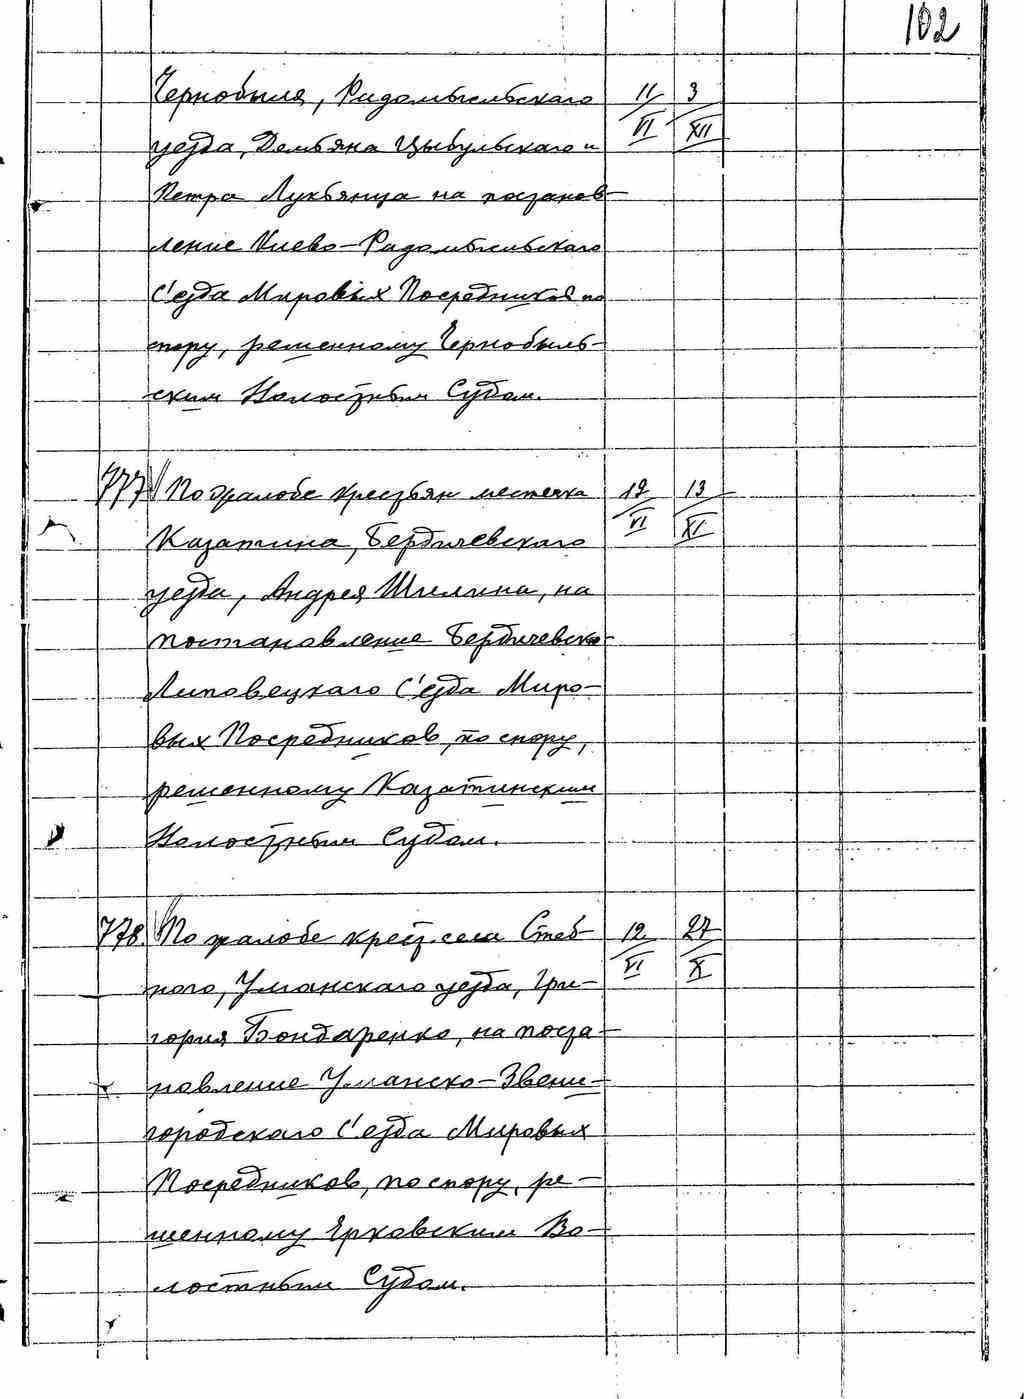 102
Чернобыля, Радомысльскаго 11/VI 3/XII
уезда, Демьяна Цыбульскаго и
Петра Лукьянца на постанов-
ление Киево-Радомысльскаго
С'езда Мировых Посредников по
спору, решенному Чернобыль-
ским Волостным Судом.
777. По жалобе крестьян местечка 12/VI 13/XI
Казатина, Бердичевскаго
уезда, Андрея Шилина, на
постановление Бердичевско-
Липовецкаго С'езда Миро-
вых Посредников, по спору,
решенному Казатинским
Волостным Судом.
778. По жалобе крест. села Стеб- 12/VI 27/X
ного, Уманскаго уезда, Гри-
гория Бондаренко, на поста-
новление Уманско-Звени-
городскаго С'езда Мировых
Посредников, по спору, ре-
шенному Ерковским Во-
лостным Судом.